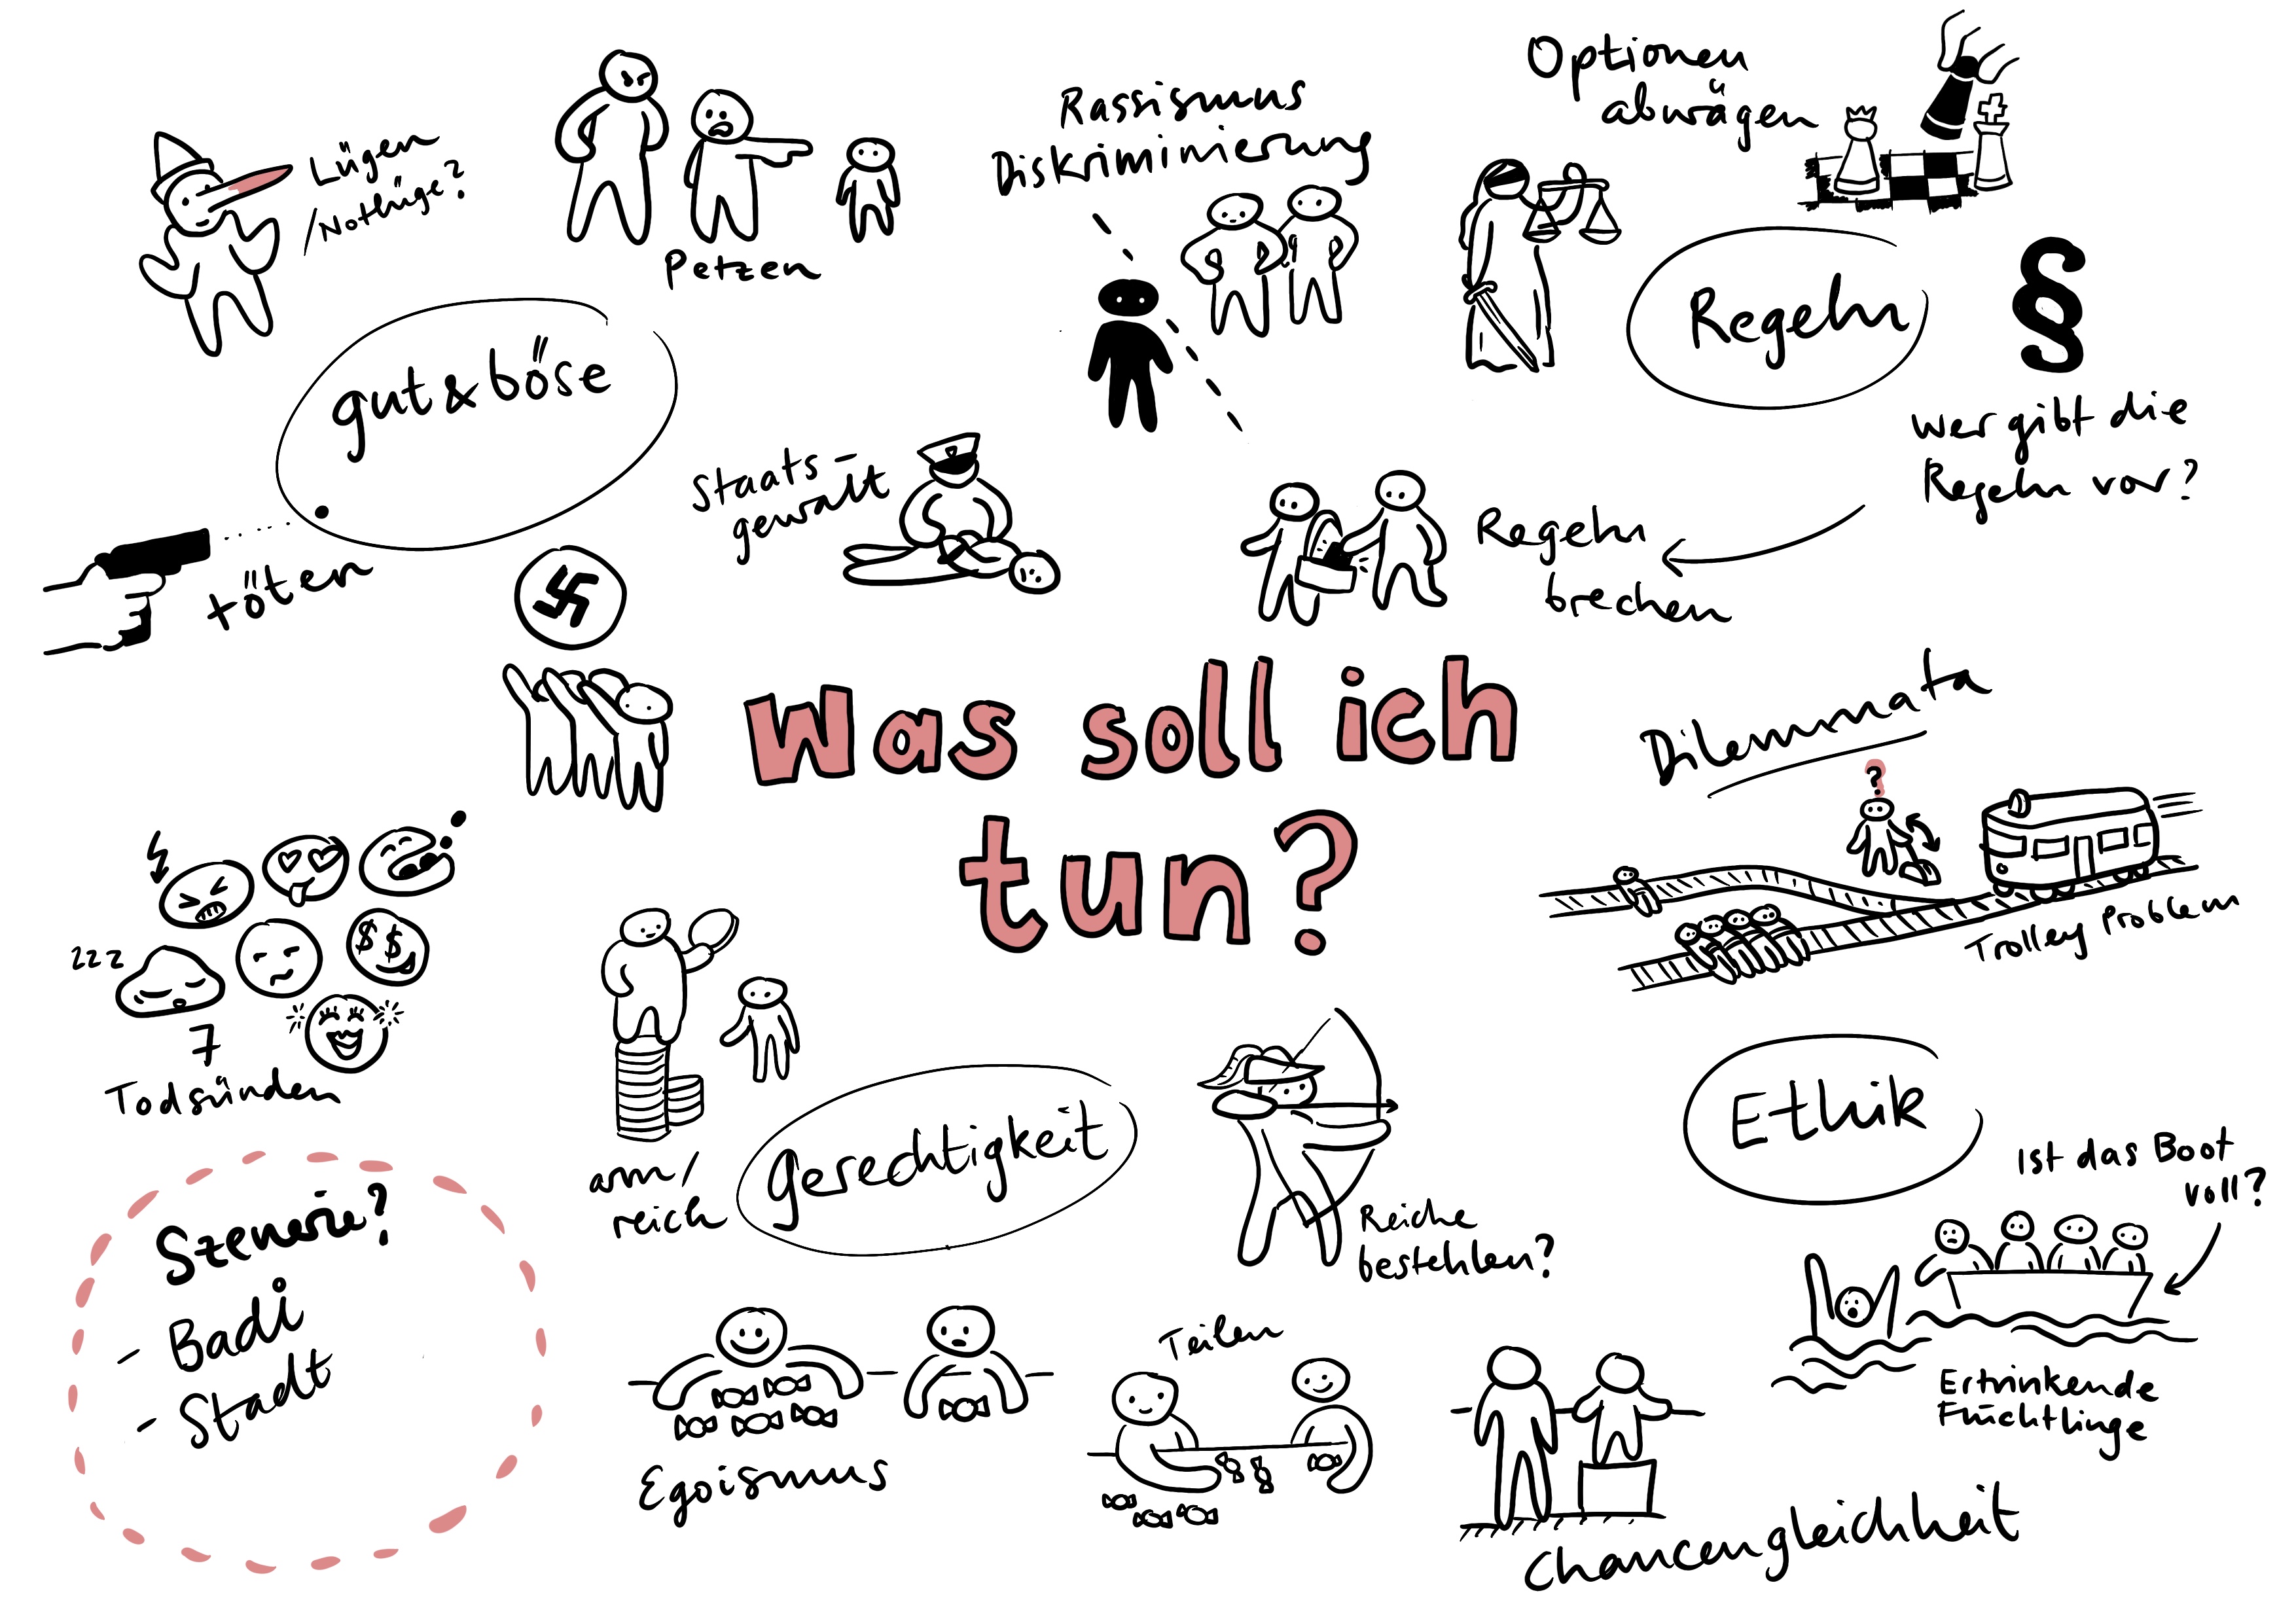 Lügen
/Notlüge?
Petzen
Rassismus
Diskriminierung
Optionen
abwägen
gut & böse
Regeln
§
Wer gibt die
Regeln vor?
Staats-
gewalt
Regeln
brechen
töten
Was soll ich
tun?
Dilemmata
?
Trolley Problem
zzz
$ $
7
Todsünden
arm/
reich
gerechtigkeit
Reiche
bestehlen?
Ethik
Ist das Boot
voll?
Ertrinkende
Flüchtlinge
Szenerie?
- Badi
- Stadt
Egoismus
Teilen
Chancengleichheit